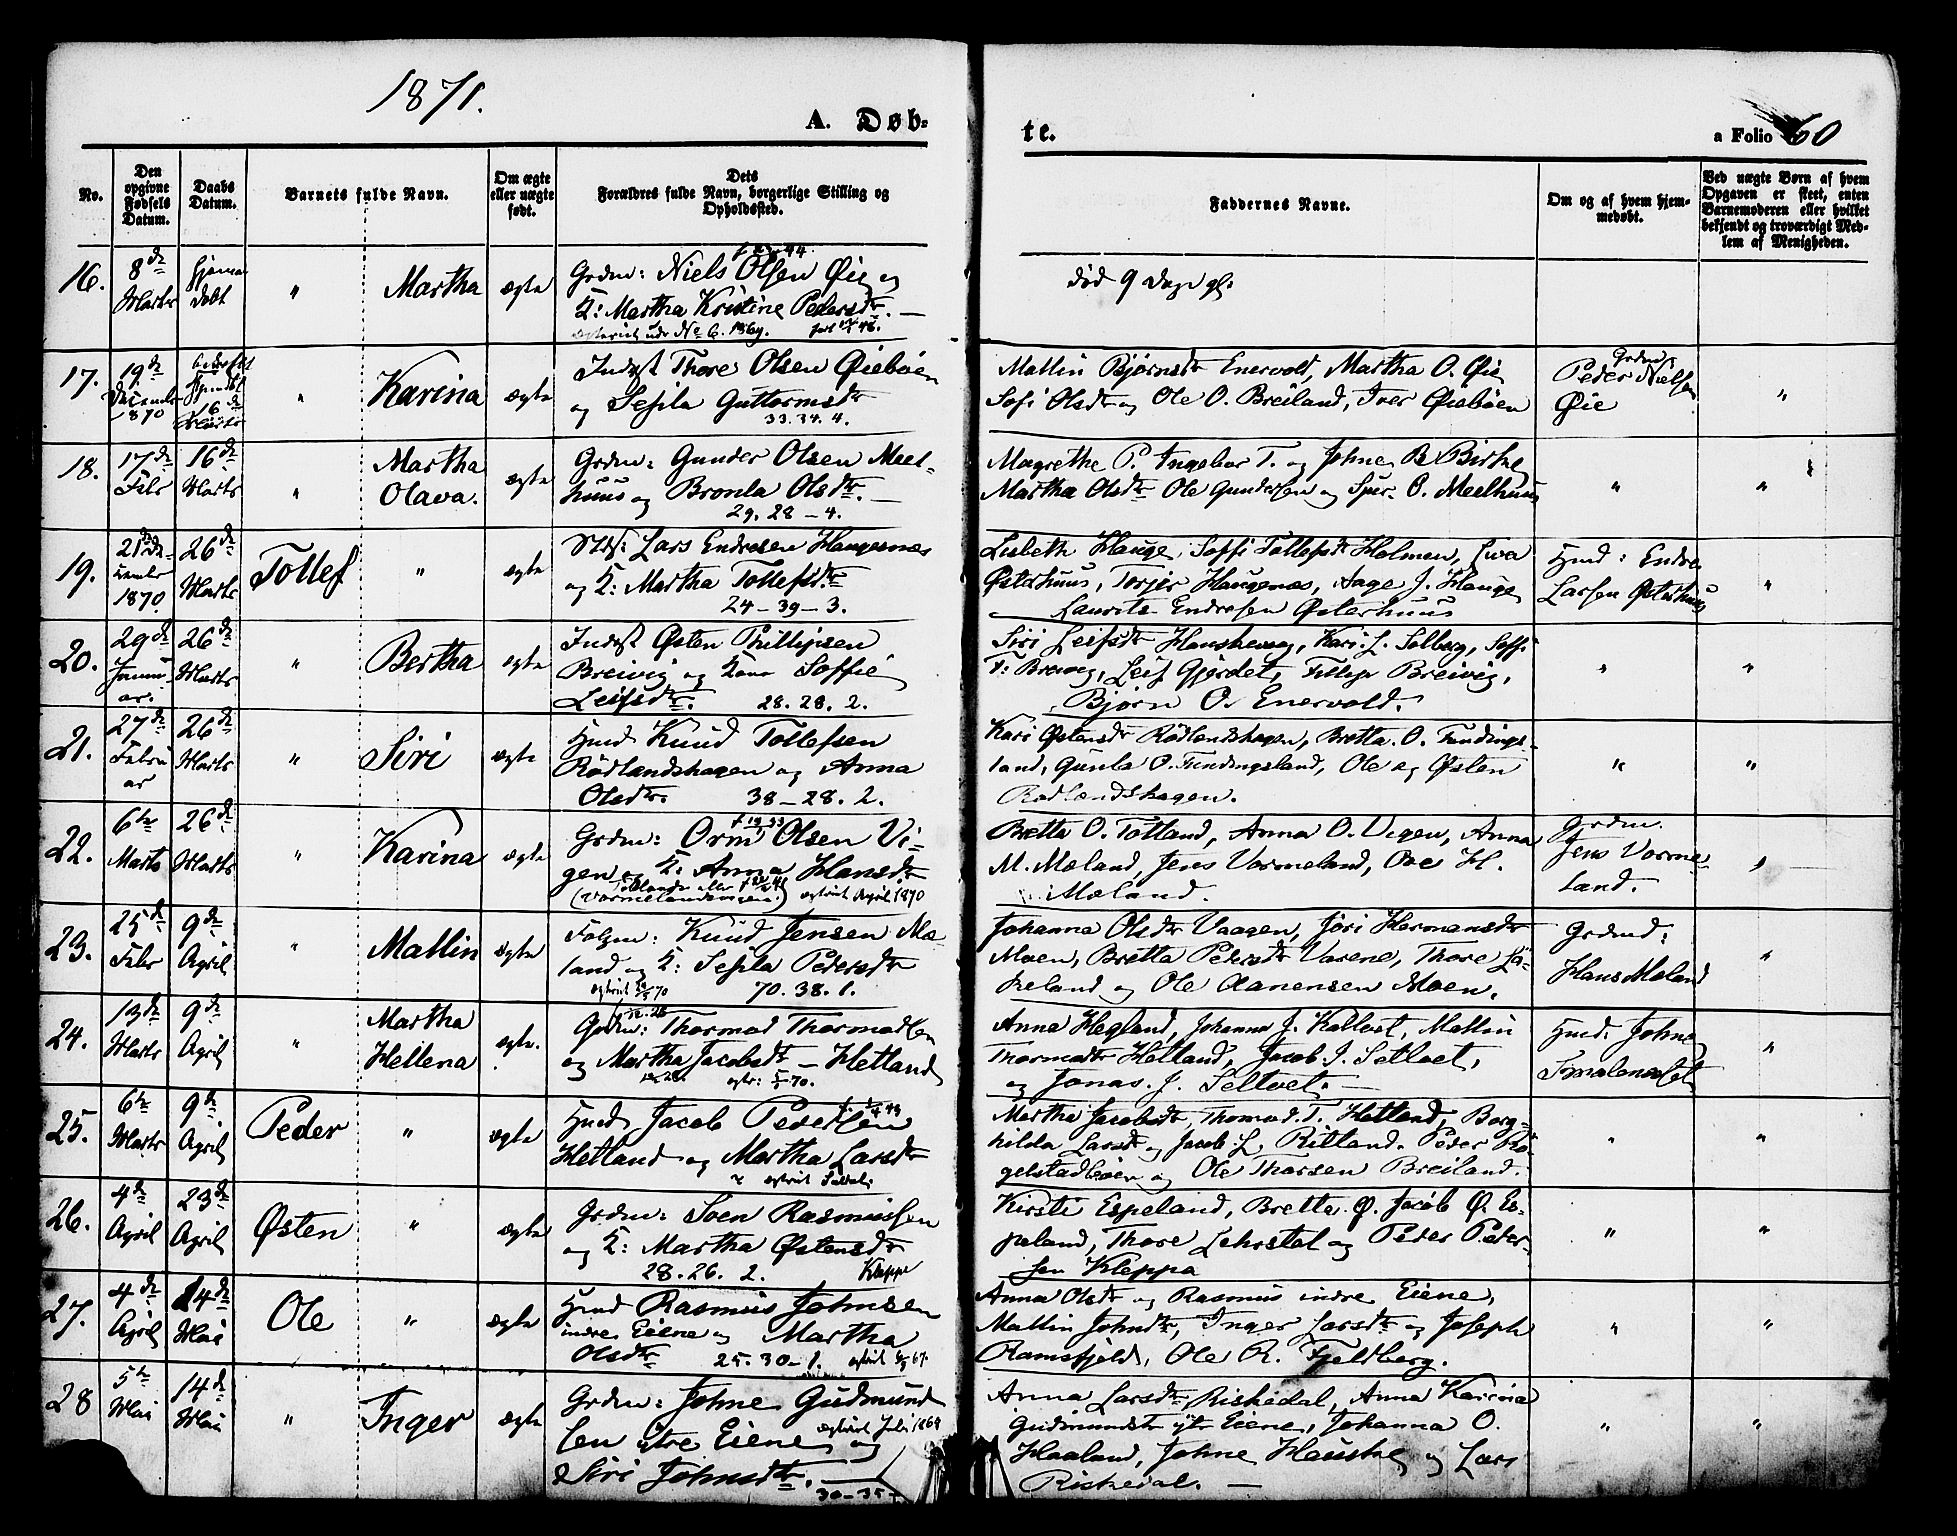 1871.
A. Døb-
te.
a Folio 60
No.
Den opgivne Fødsels Datum.
Daabs Datum.
Barnets fulde Navn.
Om ægte eller uægte født.
Dets Forældres fulde Navn, borgerlige Stilling og Opholdssted.
Faddernes Navne.
Om og af hvem hjemmedøbt.
Ved uægte Børn af hvem Opgaven er skeet, enten Barnemoderen eller hvilket bekjendt og troværdigt Medlem af Menigheden.
16.
8de Marts
Hjemmedøbt
"
Martha
ægte
Grdm: Niels Olsen Øie og
K: Martha Kristine Pedersdtr. —
No 6. 1869.
død 9 Dage gl:
17.
19de December 1870
16de Marts
"
Karina
ægte
Inderst Thore Olsen Øiebøen
og Sesila Guttormsdtr
33. 34. 4.
Mallin Bjørnsdtr Enervold, Martha O. Øie
Sofi Olsdtr og Ole O. Breiland, Iver Øiebøen
Grdm. Peder Nielsen
Øie
"
18.
17de Febr
16de Marts
"
Martha
Olava.
ægte
Grdm: Gunder Olsen Meel-
huus og Bronla Olsdtr. —
29. 28 — 4.
Magrethe P. Ingebor T. og Johne B. Birke
Martha Olsdtr Ole Gundersen og O. Meelhuus
"
"
19.
21de December 1870
26de Marts
Tollef
"
ægte
Lars Endresen Haugenæs
og K: Martha Tollefsdtr
24 — 39 — 3.
Lisbeth Hauge, Soffi Tollefsdtr Holmen, Liva
Østerhuus, Torjer Haugenæs, Aage J. Hauge
Laurits Endresen Østerhuus
Hmd: Endre
Larsen Østerhuus
"
20.
29de Januar.
26de Marts
"
Bertha
ægte
Inderst Østen Phillipsen
Breivig og Kone Soffie
Leifsdtr. 28. 28. 2.
Siri Leifsdtr Haneskevaag, Kari L. Solberg, Soffi
T: Breivig, Leif Gjerdet, Breivig,
Bjørn O. Enervold.
"
"
21.
27de Februar
26de Marts
"
Siri
ægte
Hmd Knud Tollefsen
Rødlandshagen og Anna
Olsdtr. 38 — 28. 2.
Kari Østensdtr Rødlandshagen, Bretta O. Fundings-
land, Gunla O. Fundingsland, Ole og Østen
Rødlandshagen.
"
"
22.
6te Marts
26de Marts
"
Karina
ægte
Grdm: Orm Olsen Vi-
gen og K: Anna Hansdtr
April 1870
Bretta O. Totland, Anna O. Vigen, Anna
M. Mæland, Jens Vormeland, Ove H.
Mæland.
Grdm.
Jens Vorme-
land.
"
23.
25de Febr
9de April
"
Mallin
ægte
Knud Jensen Mæ-
land og K: Sesila Pedersdtr
70. 38. 1.
Johanna Olsdtr Vaagen, Jøri Hermansdtr
Moen, Bretta Pedersdtr Varene, Thore Lø-
keland og Ole Aanensen Moen.
Grdmd:
Hans Mæland
"
24.
13de Marts
9de April
"
Martha
Hellena
ægte.
Grdm: Thormod Thormodsen
og Martha Jacobsdtr — Hetland
Anna Hegland, Johanna J. Kaltvet, Mallin
Thormodsdtr Hetland, Jacob J. Seltvet,
og Jonas. J. Seltvet. —
Hmd: Johne
Smalenaset
"
25.
6te Marts
9de April
Peder
"
ægte
Hmd Jacob Pedersen
Hetland og Martha Larsdtr
Martha Jacobsdtr, Thormod T. Hetland, Borg-
hilda Larsdtr og Jacob L. Ritland. Peder Rø-
gelstadbøen og Ole Thorsen Breiland.
"
"
26.
4de April
23de April
Østen
"
ægte
Grdm: Soen Rasmussen
og K: Martha Østensdtr
28. 26. 2. Kleppe
Kirsti Espeland, Bretta Ø. Jacob Ø. Es-
peland, Thore Lehrstøl og Peder Peder-
sen Kleppa
"
"
27.
4de April
14de Mai
Ole
"
ægte
Hmd Rasmus Johnsen
indre Eiene og Martha
Olsdtr 25. 30 — 1.
Anna Olsdtr og Rasmus indre Eiene,
Mallin Johnsdtr, Inger Larsdtr og Joseph
Ramsfjeld, Ole R. Fjeldberg.
"
"
28
5te Mai
14de Mai
"
Inger
ægte
Grdm: Johne Gudmund
sen ytre Eiene og
Juli 1864
Siri Johnsdtr. —
30 — 35 —
Anna Larsdtr Riskedal, Anna Karina
Gudmundsdtr ytr Eiene, Johanna O.
Haaland, Johne Hauske og Lars
Riskedal. —
"
"